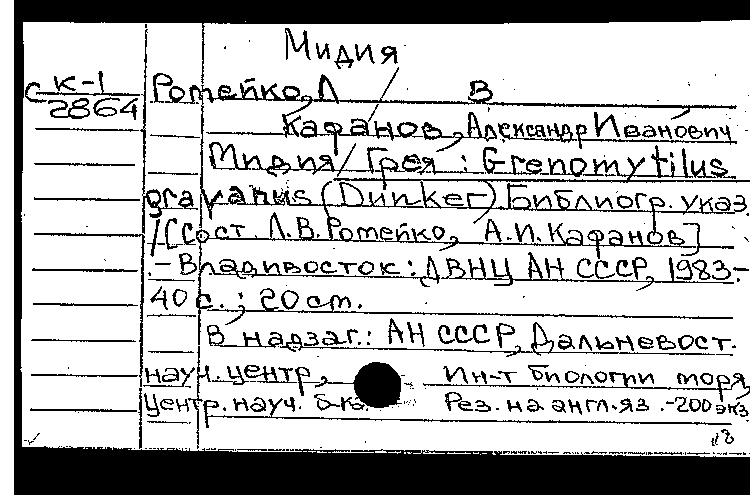 Мидия
С К-1 Ромейко, Л В
2864
Кафанов, Александр Иванович
Мидия Грея : Grenomytilus
grayanus (Dunker). Библиогр. указ
/ [сост. Л.В. Ромейко, А.И. Кафанов]
.– Владивосток : ДВНЦ АН СССР, 1983.–
40 с. ; 20 см.
В надзаг.: АН СССР, Дальневост.
науч. центр, Ин-т биологии моря,
Центр. науч. б-ка. Рез. на англ. яз. .-200 экз
18